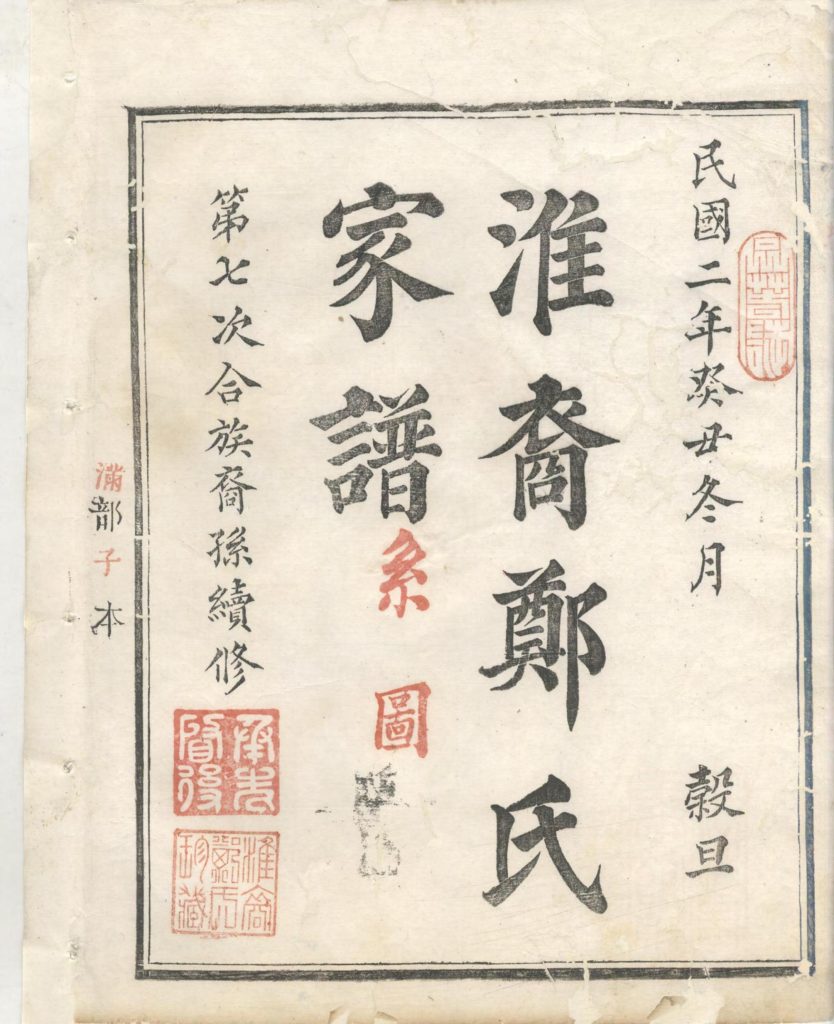 民國二年癸丑冬月 穀旦
淮裔鄭氏
家譜系圖
第七次合族裔孫續修
承先
啓後
淮裔
鄭氏
珍藏
滿部子本